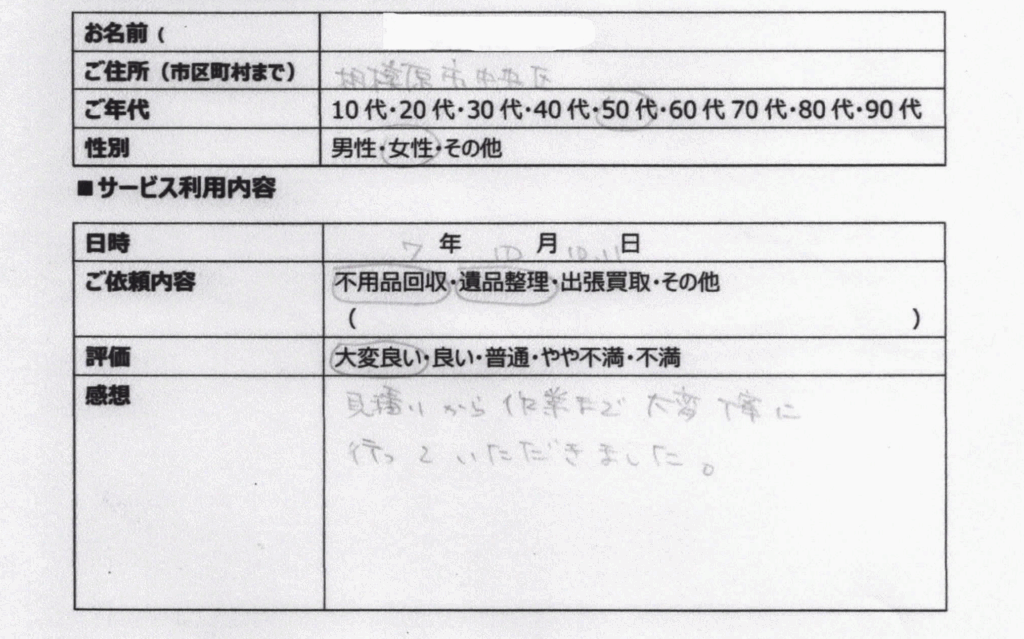 お名前 (
ご住所（市区町村まで） 相模原市中央区
ご年代 10代・20代・30代・40代・50代・60代 70代・80代・90代
性別 男性・女性・その他
■サービス利用内容
日時 7年 10月 10.11日
ご依頼内容 不用品回収・遺品整理・出張買取・その他
( )
評価 大変良い・良い・普通・やや不満・不満
感想 見積りから作業まで大変丁寧に
行っていただきました。